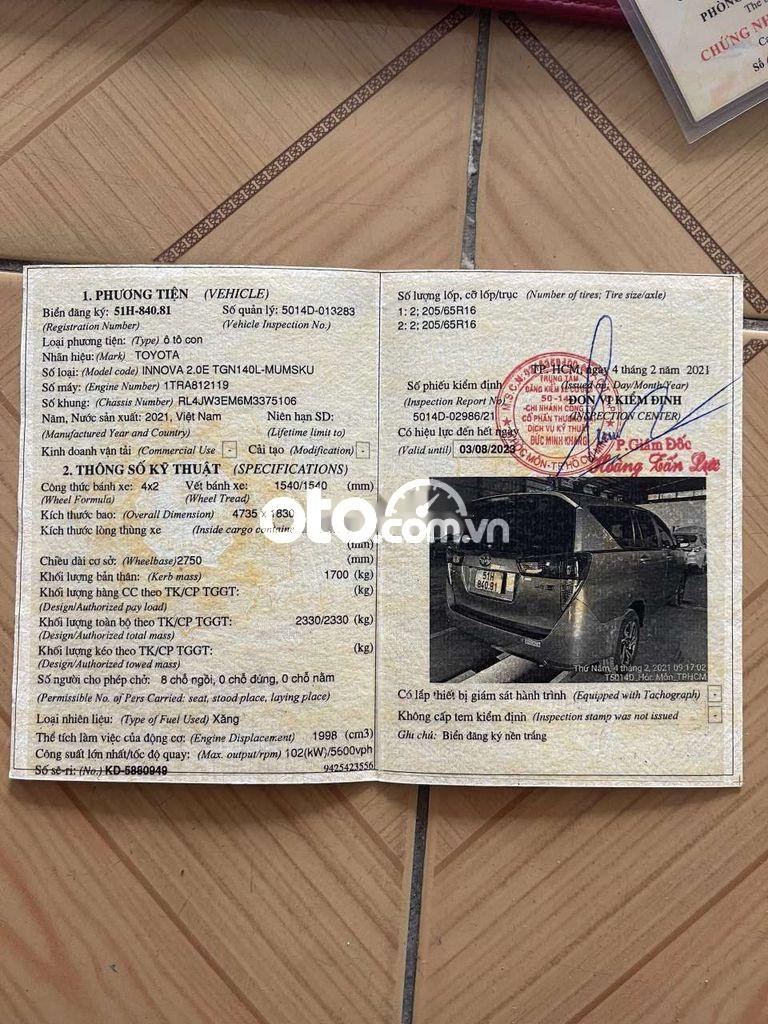 PHÒNG
The
CHỨNG NH
Ca
Số
1. PHƯƠNG TIỆN (VEHICLE)
Biển đăng ký: 51H-840.81 Số quản lý: 5014D-013283
(Registration Number) (Vehicle Inspection No.)
Loại phương tiện: (Type) ô tô con
Nhãn hiệu: (Mark) TOYOTA
Số loại: (Model code) INNOVA 2.0E TGN140L-MUMSKU
Số máy: (Engine Number) 1TRA812119
Số khung: (Chassis Number) RL4JW3EM6M3375106
Năm, Nước sản xuất: 2021, Việt Nam Niên hạn SD:
(Manufactured Year and Country) (Lifetime limit to)
Kinh doanh vận tải (Commercial Use) - Cải tạo (Modification) -
2. THÔNG SỐ KỸ THUẬT (SPECIFICATIONS)
Công thức bánh xe: 4x2 Vết bánh xe: 1540/1540 (mm)
(Wheel Formula) (Wheel Tread)
Kích thước bao: (Overall Dimension) 4735 x 1830
Kích thước lòng thùng xe (Inside cargo container
(mm)
Chiều dài cơ sở: (Wheelbase) 2750 (mm)
Khối lượng bản thân: (Kerb mass) 1700 (kg)
Khối lượng hàng CC theo TK/CP TGGT: (kg)
(Design/Authorized pay load)
Khối lượng toàn bộ theo TK/CP TGGT: 2330/2330 (kg)
(Design/Authorized total mass)
Khối lượng kéo theo TK/CP TGGT: (kg)
(Design/Authorized towed mass)
Số người cho phép chở: 8 chỗ ngồi, 0 chỗ đứng, 0 chỗ nằm
(Permissible No. of Pers Carried: seat, stood place, laying place)
Loại nhiên liệu: (Type of Fuel Used) Xăng
Thể tích làm việc của động cơ: (Engine Displacement) 1998 (cm3)
Công suất lớn nhất/tốc độ quay: (Max. output/rpm) 102(kW)/5600vph
Số sê-ri: (No.) KD-5880949 9425423556
Số lượng lốp, cỡ lốp/trục (Number of tires; Tire size/axle)
1: 2; 205/65R16
2: 2; 205/65R16
TP. HCM, ngày 4 tháng 2 năm 2021
Số phiếu kiểm định (Issued on: Day/Month/Year)
(Inspection Report No) ĐƠN VỊ KIỂM ĐỊNH
5014D-02986/21 (INSPECTION CENTER)
Có hiệu lực đến hết ngày
(Valid until) 03/08/2023
TRUNG TÂM
ĐĂNG KIỂM XE CƠ GIỚI
50-14D
CHI NHÁNH CÔNG TY
CỔ PHẦN THƯƠNG MẠI
DỊCH VỤ KỸ THUẬT
ĐỨC MINH KHANG
P.Giám Đốc
Hoàng Tấn Lực
oto.com.vn
51H
840.81
Thứ Năm, 4 tháng 2, 2021 09:17:02
T5014D, Hóc Môn, TPHCM
Có lắp thiết bị giám sát hành trình (Equipped with Tachograph) -
Không cấp tem kiểm định (Inspection stamp was not issued -
Ghi chú: Biển đăng ký nền trắng